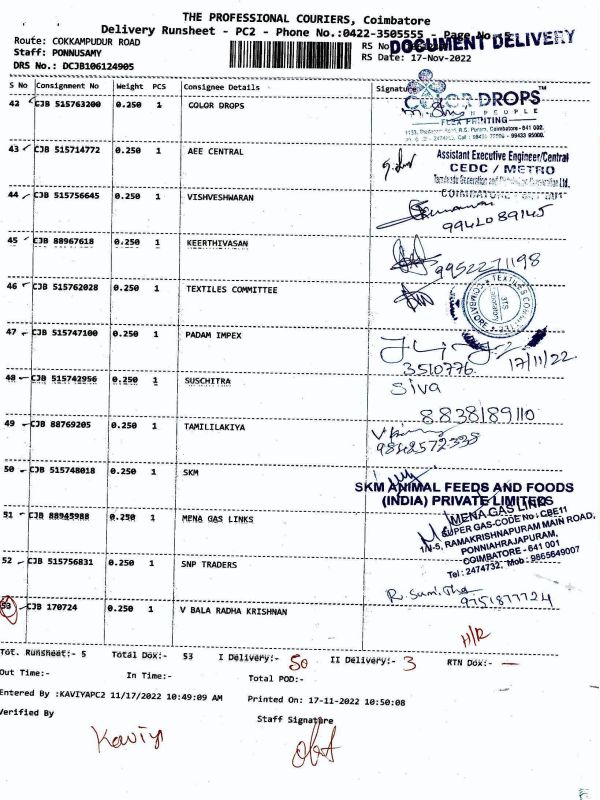 THE PROFESSIONAL COURIERS, Coimbatore
Delivery Runsheet - PC2 - Phone No.:0422-3505555 - Page No
Route: COKKAMPUDUR ROAD
RS No
DOCUMENT DELIVERY
Staff: PONNUSAMY
RS Date: 17-Nov-2022
DRS No.: DCJB106124905
S No Consignment No Weight PCS Consignee Details Signature
42 CJB 515763200 0.250 1 COLOR DROPS
COLOR DROPS
PEOPLE
FLEX PRINTING
43 CJB 515714772 0.250 1 AEE CENTRAL
Assistant Executive Engineer/Central
CEDC / METRO
44 CJB 515756645 0.250 1 VISHVESHWARAN
9942089145
45 CJB 88967618 0.250 1 KEERTHIVASAN
9952271198
46 CJB 515762028 0.250 1 TEXTILES COMMITTEE
47 CJB 515747100 0.250 1 PADAM IMPEX
3510776 17/11/22
48 CJB 515742956 0.250 1 SUSCHITRA
Siva
8838189110
49 CJB 88769205 0.250 1 TAMILILAKIYA
9842572338
50 CJB 515748018 0.250 1 SKM
SKM ANIMAL FEEDS AND FOODS
(INDIA) PRIVATE LIMITED
51 CJB 88945988 0.250 1 MENA GAS LINKS
MENA GAS LINKS
SUPER GAS-CODE No: CBE11
1/N-5, RAMAKRISHNAPURAM MAIN ROAD,
PONNIAHRAJAPURAM,
COIMBATORE - 641 001
Tel: 2474732, Mob: 9865649007
52 CJB 515756831 0.250 1 SNP TRADERS
9751877724
53 CJB 170724 0.250 1 V BALA RADHA KRISHNAN
H/R
Tot. Runsheet:- 5 Total Dox:- 53 I Delivery:- 50 II Delivery:- 3 RTN Dox:- —
Out Time:- In Time:- Total POD:-
Entered By :KAVIYAPC2 11/17/2022 10:49:09 AM Printed On: 17-11-2022 10:50:08
Verified By Staff Signature
Kaviya